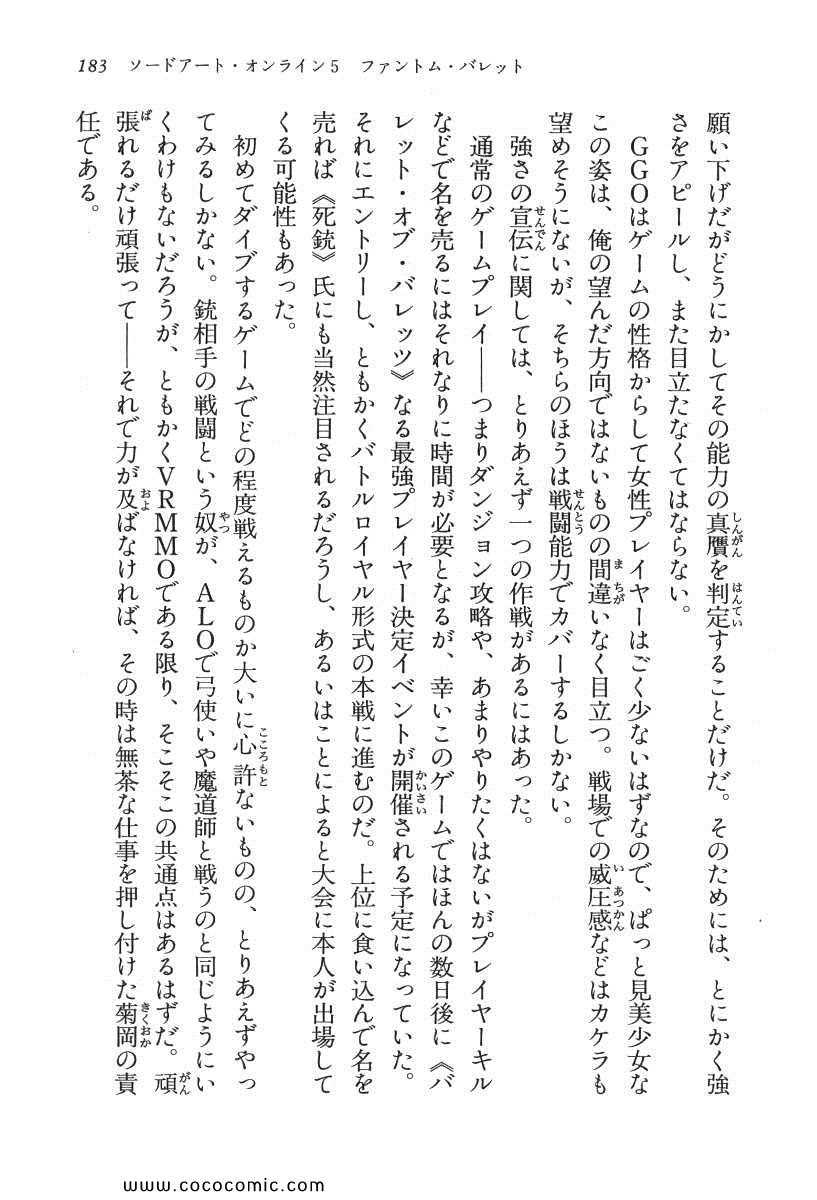 183　ソードアート・オンライン5　ファントム・バレット
願い下げだがどうにかしてその能力の真贋を判定することだけだ。そのためには、とにかく強
さをアピールし、また目立たなくてはならない。
　GGOはゲームの性格からして女性プレイヤーはごく少ないはずなので、ぱっと見美少女な
この姿は、俺の望んだ方向ではないものの間違いなく目立つ。戦場での威圧感などはカケラも
望めそうにないが、そちらのほうは戦闘能力でカバーするしかない。
　強さの宣伝に関しては、とりあえず一つの作戦があるにはあった。
　通常のゲームプレイ――つまりダンジョン攻略や、あまりやりたくはないがプレイヤーキル
などで名を売るにはそれなりに時間が必要となるが、幸いこのゲームではほんの数日後に《バ
レット・オブ・バレッツ》なる最強プレイヤー決定イベントが開催される予定になっていた。
それにエントリーし、ともかくバトルロイヤル形式の本戦に進むのだ。上位に食い込んで名を
売れば《死銃》氏にも当然注目されるだろうし、あるいはことによると大会に本人が出場して
くる可能性もあった。
　初めてダイブするゲームでどの程度戦えるものか大いに心許ないものの、とりあえずやっ
てみるしかない。銃相手の戦闘という奴が、ALOで弓使いや魔道師と戦うのと同じようにい
くわけもないだろうが、ともかくVRMMOである限り、そこそこの共通点はあるはずだ。頑
張れるだけ頑張って――それで力が及ばなければ、その時は無茶な仕事を押し付けた菊岡の責
任である。
www.cococomic.com